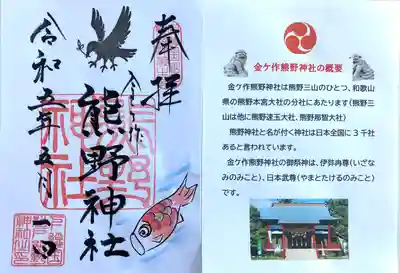 奉拝
金ケ作
熊野神社
令和五年五月一日
金ケ作熊野神社の概要
金ケ作熊野神社は熊野三山のひとつ、和歌山
県の熊野本宮大社の分社にあたります(熊野三
山は他に熊野速玉大社、熊野那智大社)
熊野神社と名が付く神社は日本全国に３千社
あると言われています。
金ケ作熊野神社の御祭神は、伊弉冉尊(いざな
みのみこと)、日本武尊(やまとたけるのみこと)
です。